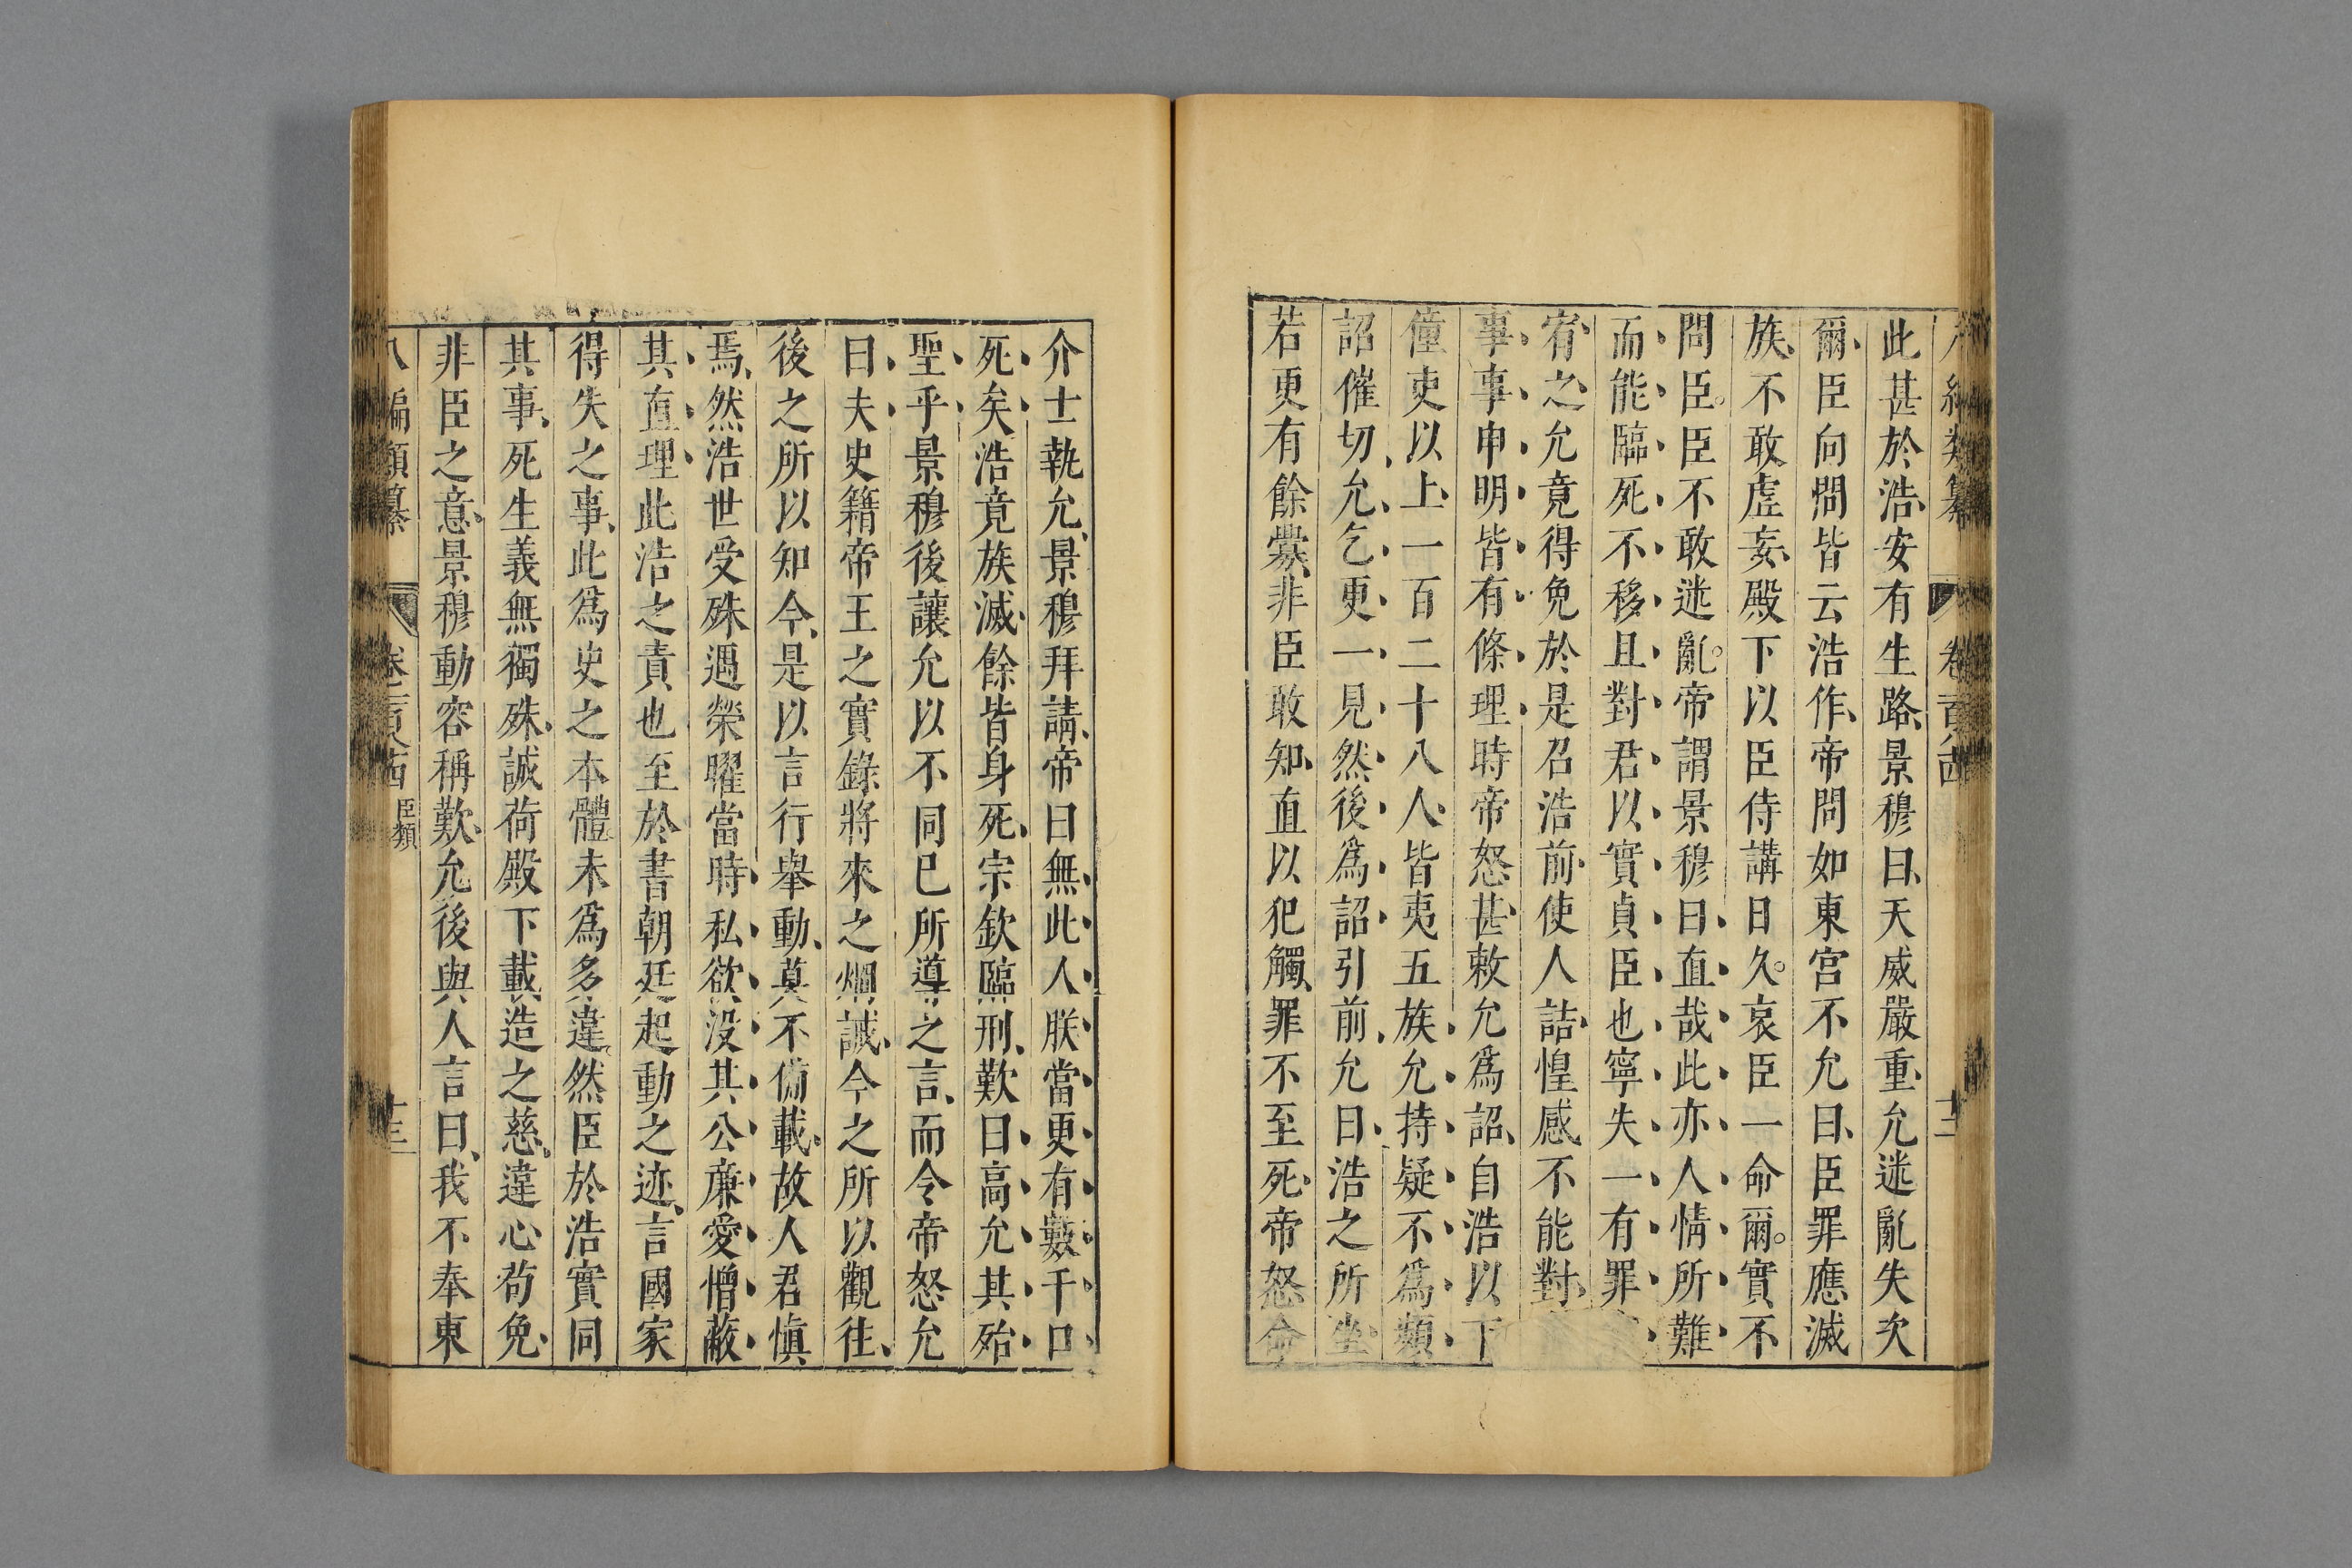 此甚於浩安有生路景穆曰天威嚴重允迷亂失次
爾臣向問皆云浩作帝問如東宮不允曰臣罪應滅
族不敢虛妄殿下以臣侍講日久哀臣一命爾實不
問臣臣不敢迷亂帝謂景穆曰直哉此亦人情所難
而能臨死不移且對君以實貞臣也寧失一有罪
宥之允竟得免於是召浩前使人詰惶惑不能對
事事申明皆有條理時帝怒甚敕允爲詔自浩以下
僮吏以上一百二十八人皆夷五族允持疑不爲頻
詔催切允乞更一見然後爲詔引前允曰浩之所坐
若更有餘釁非臣敢知直以犯觸罪不至死帝怒命
介士執允景穆拜請帝曰無此人朕當更有數千口
死矣浩竟族滅餘皆身死宗欽臨刑歎曰高允其殆
聖乎景穆後讓允以不同已所導之言而令帝怒允
曰夫史籍帝王之實錄將來之炯誡今之所以觀往
後之所以知今是以言行舉動莫不備載故人君愼
焉然浩世受殊遇榮曜當時私欲沒其公廉愛憎蔽
其直理此浩之責也至於書朝廷起動之迹言國家
得失之事此爲史之本體未爲多違然臣於浩實同
其事死生義無獨殊誠荷殿下載造之慈違心茍免
非臣之意景穆動容稱歎允後與人言曰我不奉東
八編類纂 臣類 十三